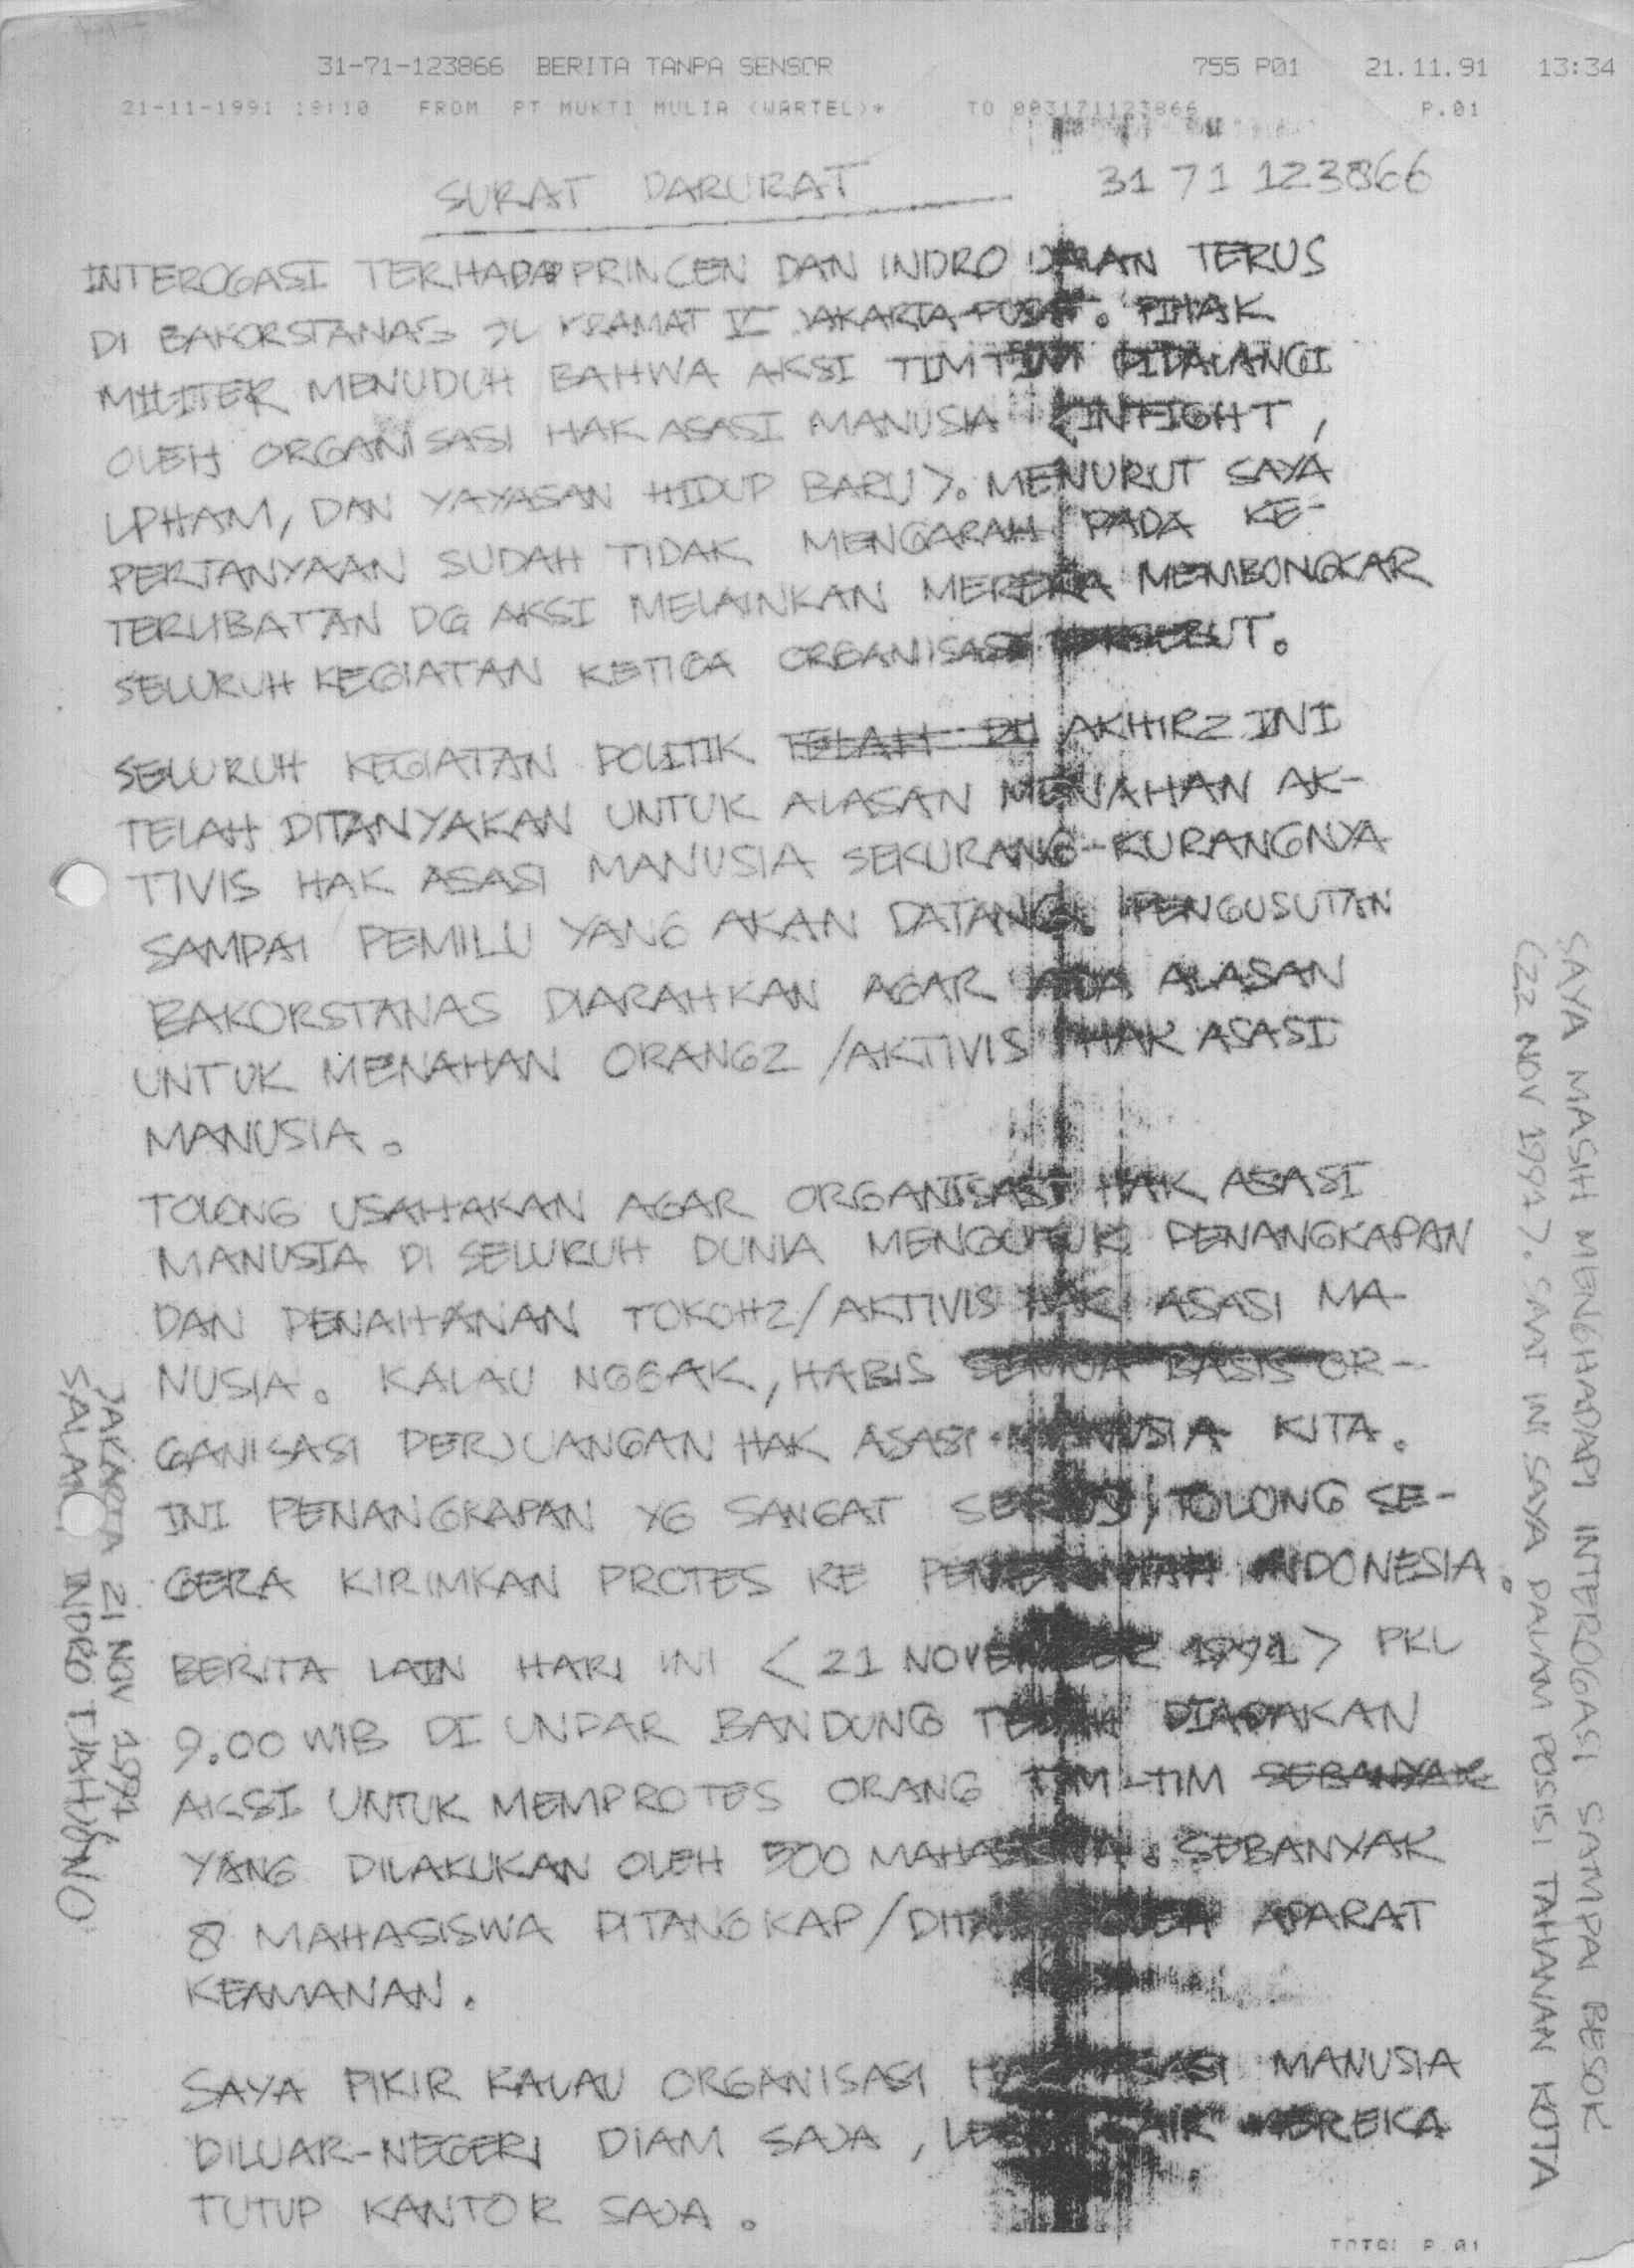 31-71-123866 BERITA TANPA SENSOR 755 P01 21.11.91 13:34
21-11-1991 19:10 FROM PT MUKTI MULIA (WARTEL)* TO 003171123866 P.01
SURAT DARURAT 31 71 123866
INTEROGASI TERHADAP PRINCEN DAN INDRO JALAN TERUS
DI BAKORSTANAS JL KRAMAT V JAKARTA PUSAT. PIHAK
MILITER MENUDUH BAHWA AKSI TIMTIM DIDALANGI
OLEH ORGANISASI HAK ASASI MANUSIA <INFIGHT,
LPHAM, DAN YAYASAN HIDUP BARU>. MENURUT SAYA
PERTANYAAN SUDAH TIDAK MENGARAH PADA KE-
TERLIBATAN DG AKSI MELAINKAN MEREKA MEMBONGKAR
SELURUH KEGIATAN KETIGA ORGANISASI TERSEBUT.
SELURUH KEGIATAN POLITIK TELAH DI AKHIR2 INI
TELAH DITANYAKAN UNTUK ALASAN MENAHAN AK-
TIVIS HAK ASASI MANUSIA SEKURANG-KURANGNYA
SAMPAI PEMILU YANG AKAN DATANG. PENGUSUTAN
BAKORSTANAS DIARAHKAN AGAR ADA ALASAN
UNTUK MENAHAN ORANG2/AKTIVIS HAK ASASI
MANUSIA.
TOLONG USAHAKAN AGAR ORGANISASI HAK ASASI
MANUSIA DI SELURUH DUNIA MENGUTUK PENANGKAPAN
DAN PENAHANAN TOKOH2/AKTIVIS HAK ASASI MA-
NUSIA. KALAU NGGAK, HABIS SEMUA BASIS OR-
GANISASI PERJUANGAN HAK ASASI MANUSIA KITA.
INI PENANGKAPAN YG SANGAT SERIUS, TOLONG SE-
GERA KIRIMKAN PROTES KE PEMERINTAH INDONESIA.
BERITA LAIN HARI INI <21 NOVEMBER 1991> PKL
9.00 WIB DI UNPAR BANDUNG TELAH DIADAKAN
AKSI UNTUK MEMPROTES ORANG TIM-TIM SEBANYAK
YANG DILAKUKAN OLEH 500 MAHASISWA. SEBANYAK
8 MAHASISWA DITANGKAP/DITAHAN OLEH APARAT
KEAMANAN.
SAYA PIKIR KALAU ORGANISASI HAK ASASI MANUSIA
DILUAR-NEGERI DIAM SAJA, LEBIH BAIK MEREKA
TUTUP KANTOR SAJA.
SAYA MASIH MENGHADAPI INTEROGASI SAMPAI BESOK
(22 NOV 1991). SAAT INI SAYA DALAM POSISI TAHANAN KOTA
JAKARTA 21 NOV 1991
SALAM, INDRO TJAHJONO
TOTAL P.01